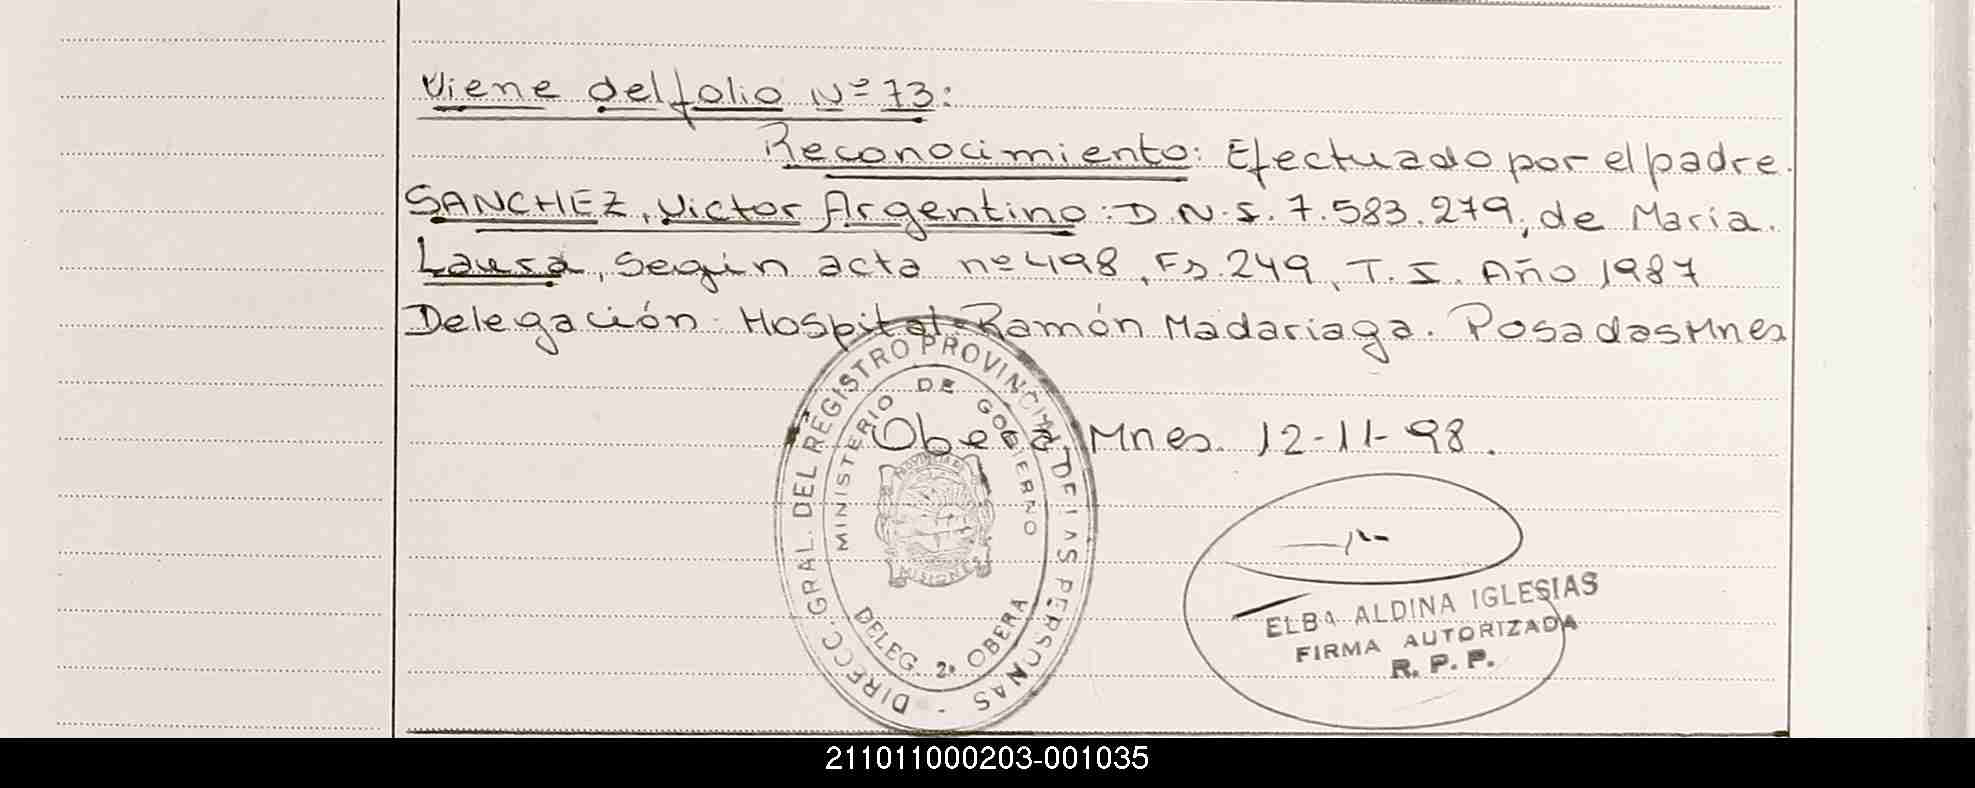 Viene del folio Nº 73:
Reconocimiento: Efectuado por el padre.
SANCHEZ, Victor Argentino: D.N.I. 7.583.279, de María.
Laura, Según acta nº 498, Fs. 249, T. I. Año 1987
Delegación Hospital Ramón Madariaga. Posadas Mnes
Oberá Mnes. 12-11-98.
DIRECC. GRAL. DEL REGISTRO PROVINCIAL DE LAS PERSONAS -
MINISTERIO DE GOBIERNO
PROVINCIA DE
MISIONES
DELEG. 2ª OBERA
ELBA ALDINA IGLESIAS
FIRMA AUTORIZADA
R. P. P.
211011000203-001035